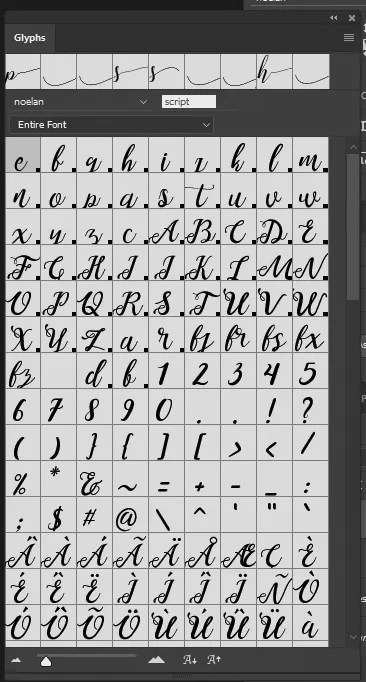 noelan
Glyphs
p s s h
noelan script
Entire Font
e f g h i j k l m
n o p q s t u v w
x y z c A B C D E
F G H I J K L M N
O P Q R S T U V W
X Y Z a r fj fr fs fx
fz d b 1 2 3 4 5
6 7 8 9 0 . . ! ?
( ) } { ] [ > < /
% * & ~ = + - _ :
; $ # @ \ ^ ' " `
Â À Á Ã Ä Å Æ C È
É Ê Ë Ì Í Î Ï Ñ Ò
Ó Ô Õ Ö Ù Ú Û Ü à